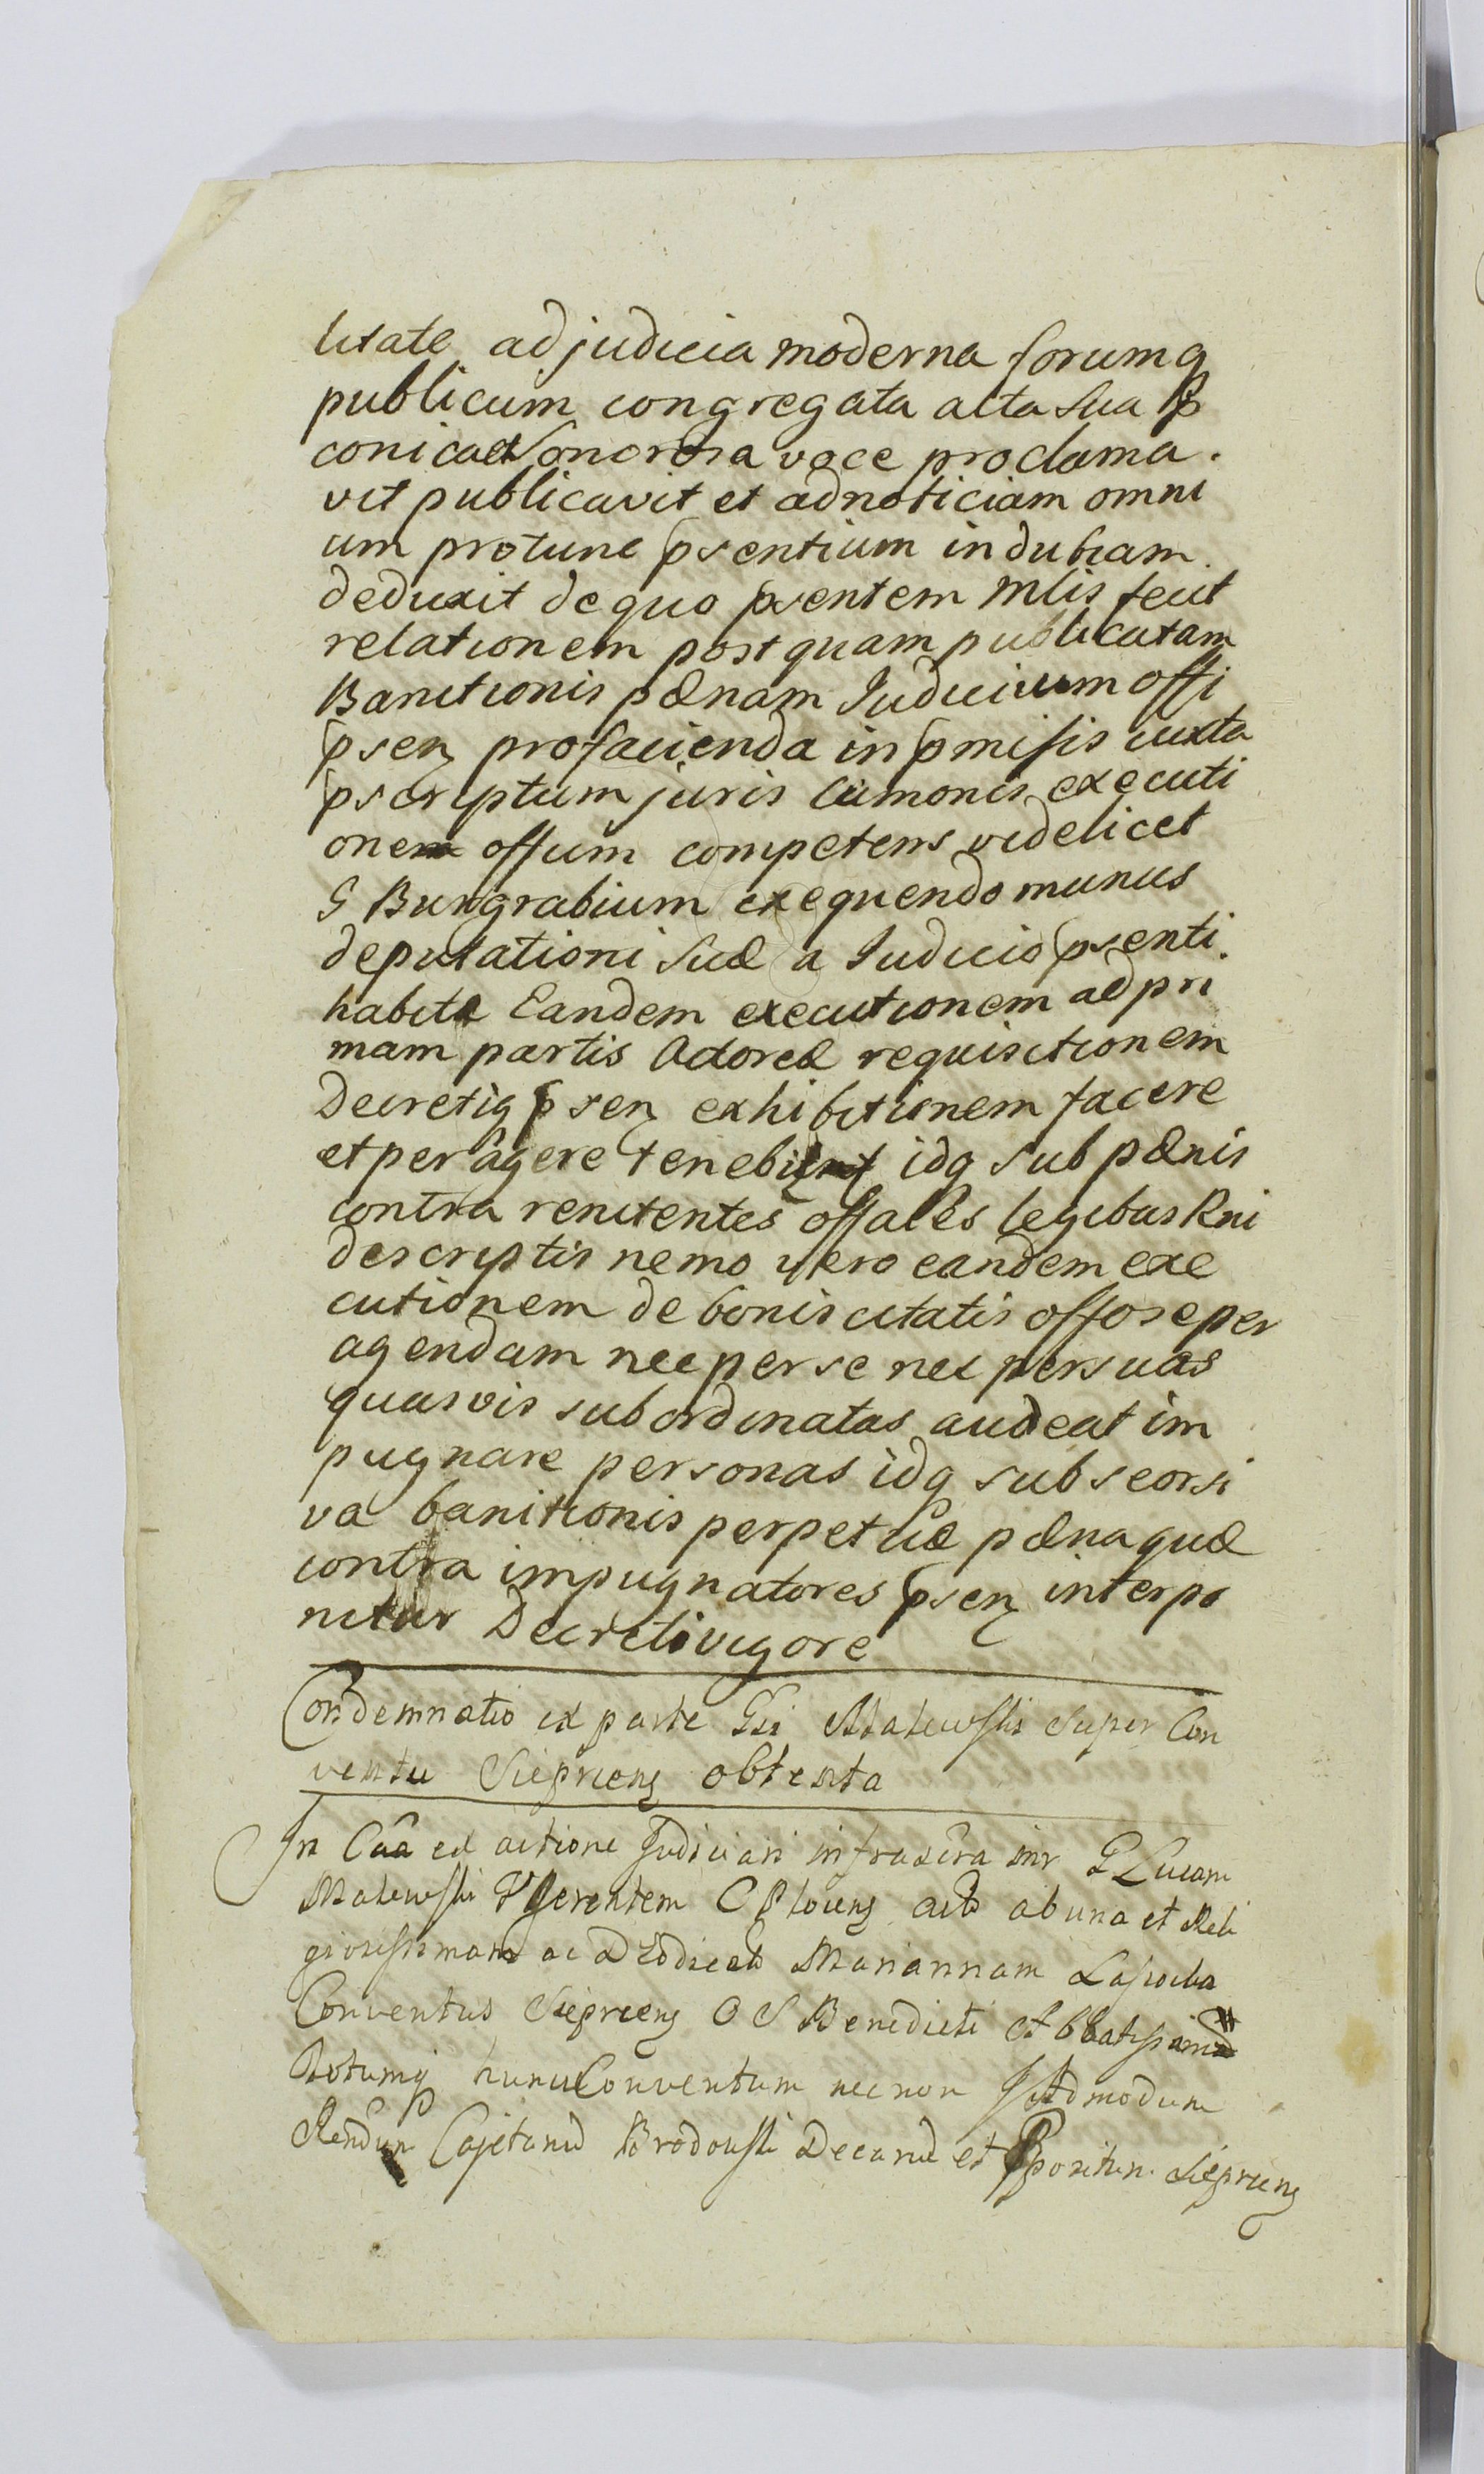 litate ad judicia moderna forumq
publicum congregata alta sua P
conica et Sonorosa voce proclama.
vit publicavit et ad noticiam omni
um protunc psentium indubiam
deduxit de quo psentem Mlis fecit
relationem post quam publicatam
Banitionis pænam Judicium offi
psen pro facienda in pmisis iuxta
pscriptum juris cumonis executi
onem offum competens videlicet
G Burgrabium exequendo munus
deputationi suæ a Judicio psenti
habita Eandem executionem ad pri
mam partis Actoreæ requisitionem
Decretiq psen exhibitionem facere
et peragere tenebit idq sub pænis
contra renitentes offales legibus Rni
descriptis nemo vero eandem exe
cutionem de bonis citatis offose per
agendam nec per se nec per suas
quasvis subordinatas audeat im
pugnare personas idq sub seorsi
va banitionis perpetuæ pæna quæ
contra impugnatores psen interpo
nitur Decreti vigore
Condemnatio ex parte Gsi Malewski super Con
ventu Sieprcens obtenta
In Caâ ex actione Judiciari infrascra inr G Lucam
Malewski VGerentem C Plocens act ab una et Reli
giosissimam ac Mariannam
Conventus Sieprcens O S Benedicti Abbatissam #
totumq hunc Conventum necnon Admodum
Rendum Cajetanu Brodowski Decanu et Ppositum Sieprcens